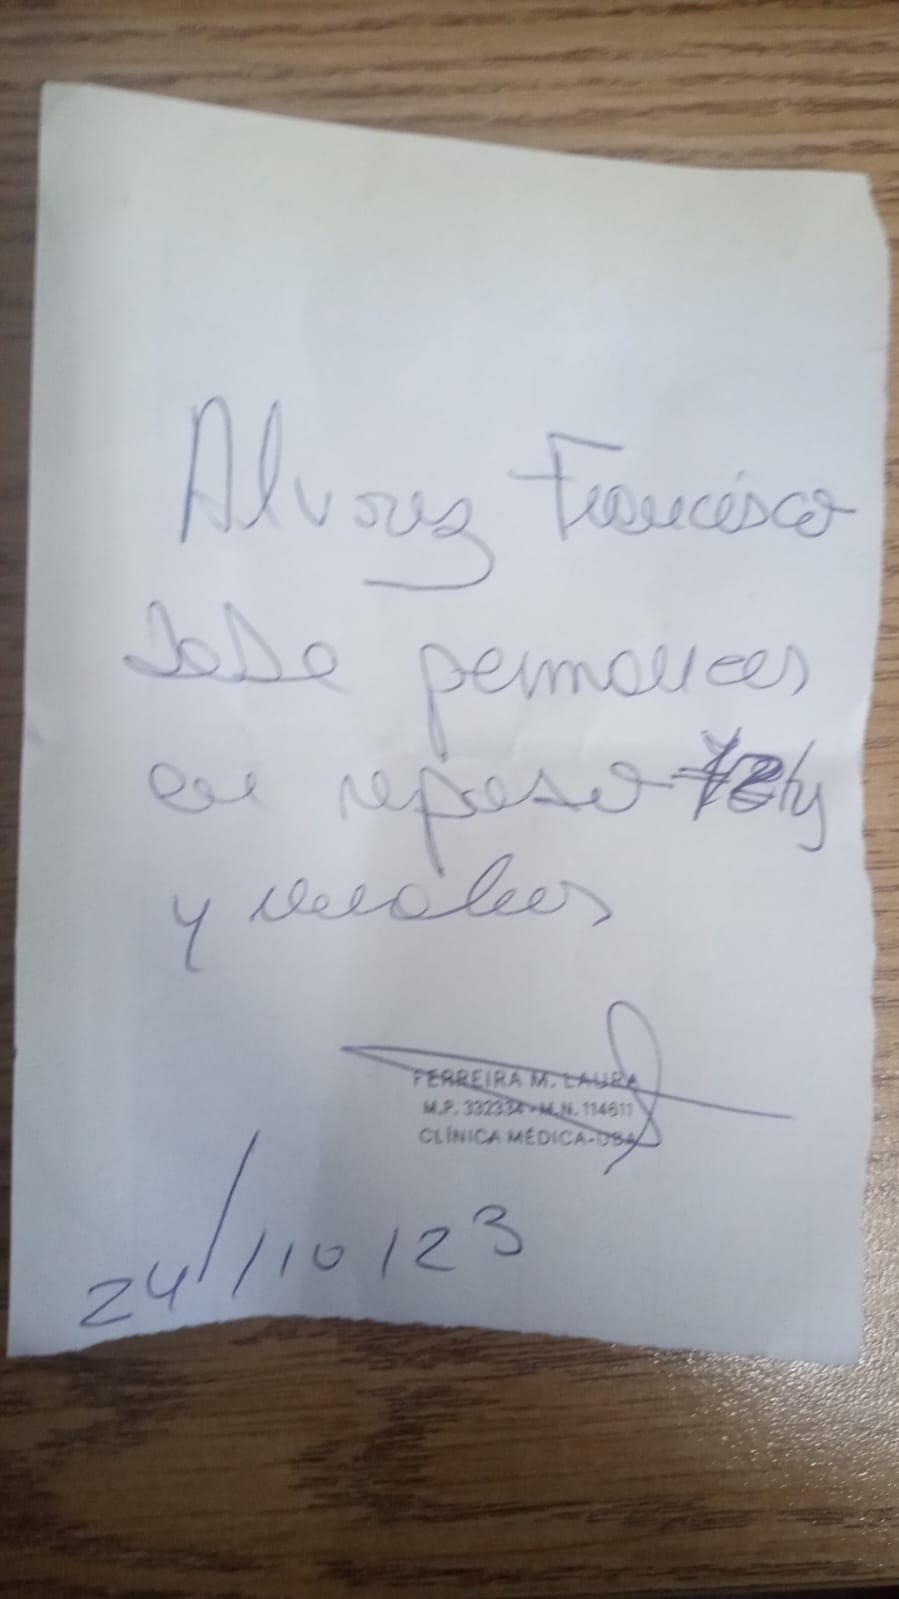 Alvarez Francisco
debe permanecer
en reposo 72hs
y revaluar
FERREIRA M. LAURA
M.P. 332334 - M.N. 114611
CLÍNICA MÉDICA-UBA
24/10/23